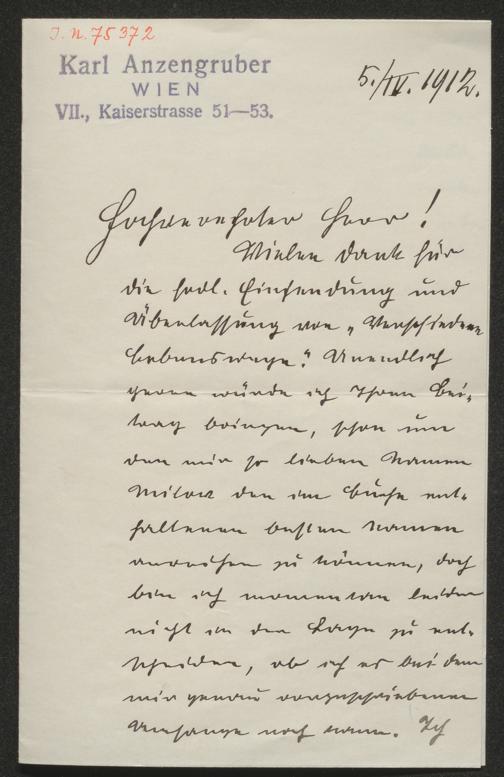 J. N. 75372
Karl Anzengruber
WIEN
VII., Kaiserstrasse 51—53.
5./IV. 1912.
Hochverehrter Herr!
Vielen Dank für
die frdl. Einsendung und
Überlassung von „Verschiedene
Lebenswege". Unendlich
gerne würde ich Ihren Bei-
trag bringen, schon um
den mir so lieben Namen
Milow den im Buche ent-
haltenen besten Namen
anreihen zu können, doch
bin ich momentan leider
nicht in der Lage zu ent-
scheiden, ob ich es bei dem
mir genau vorgeschriebenen
Umfange noch kann. Ich